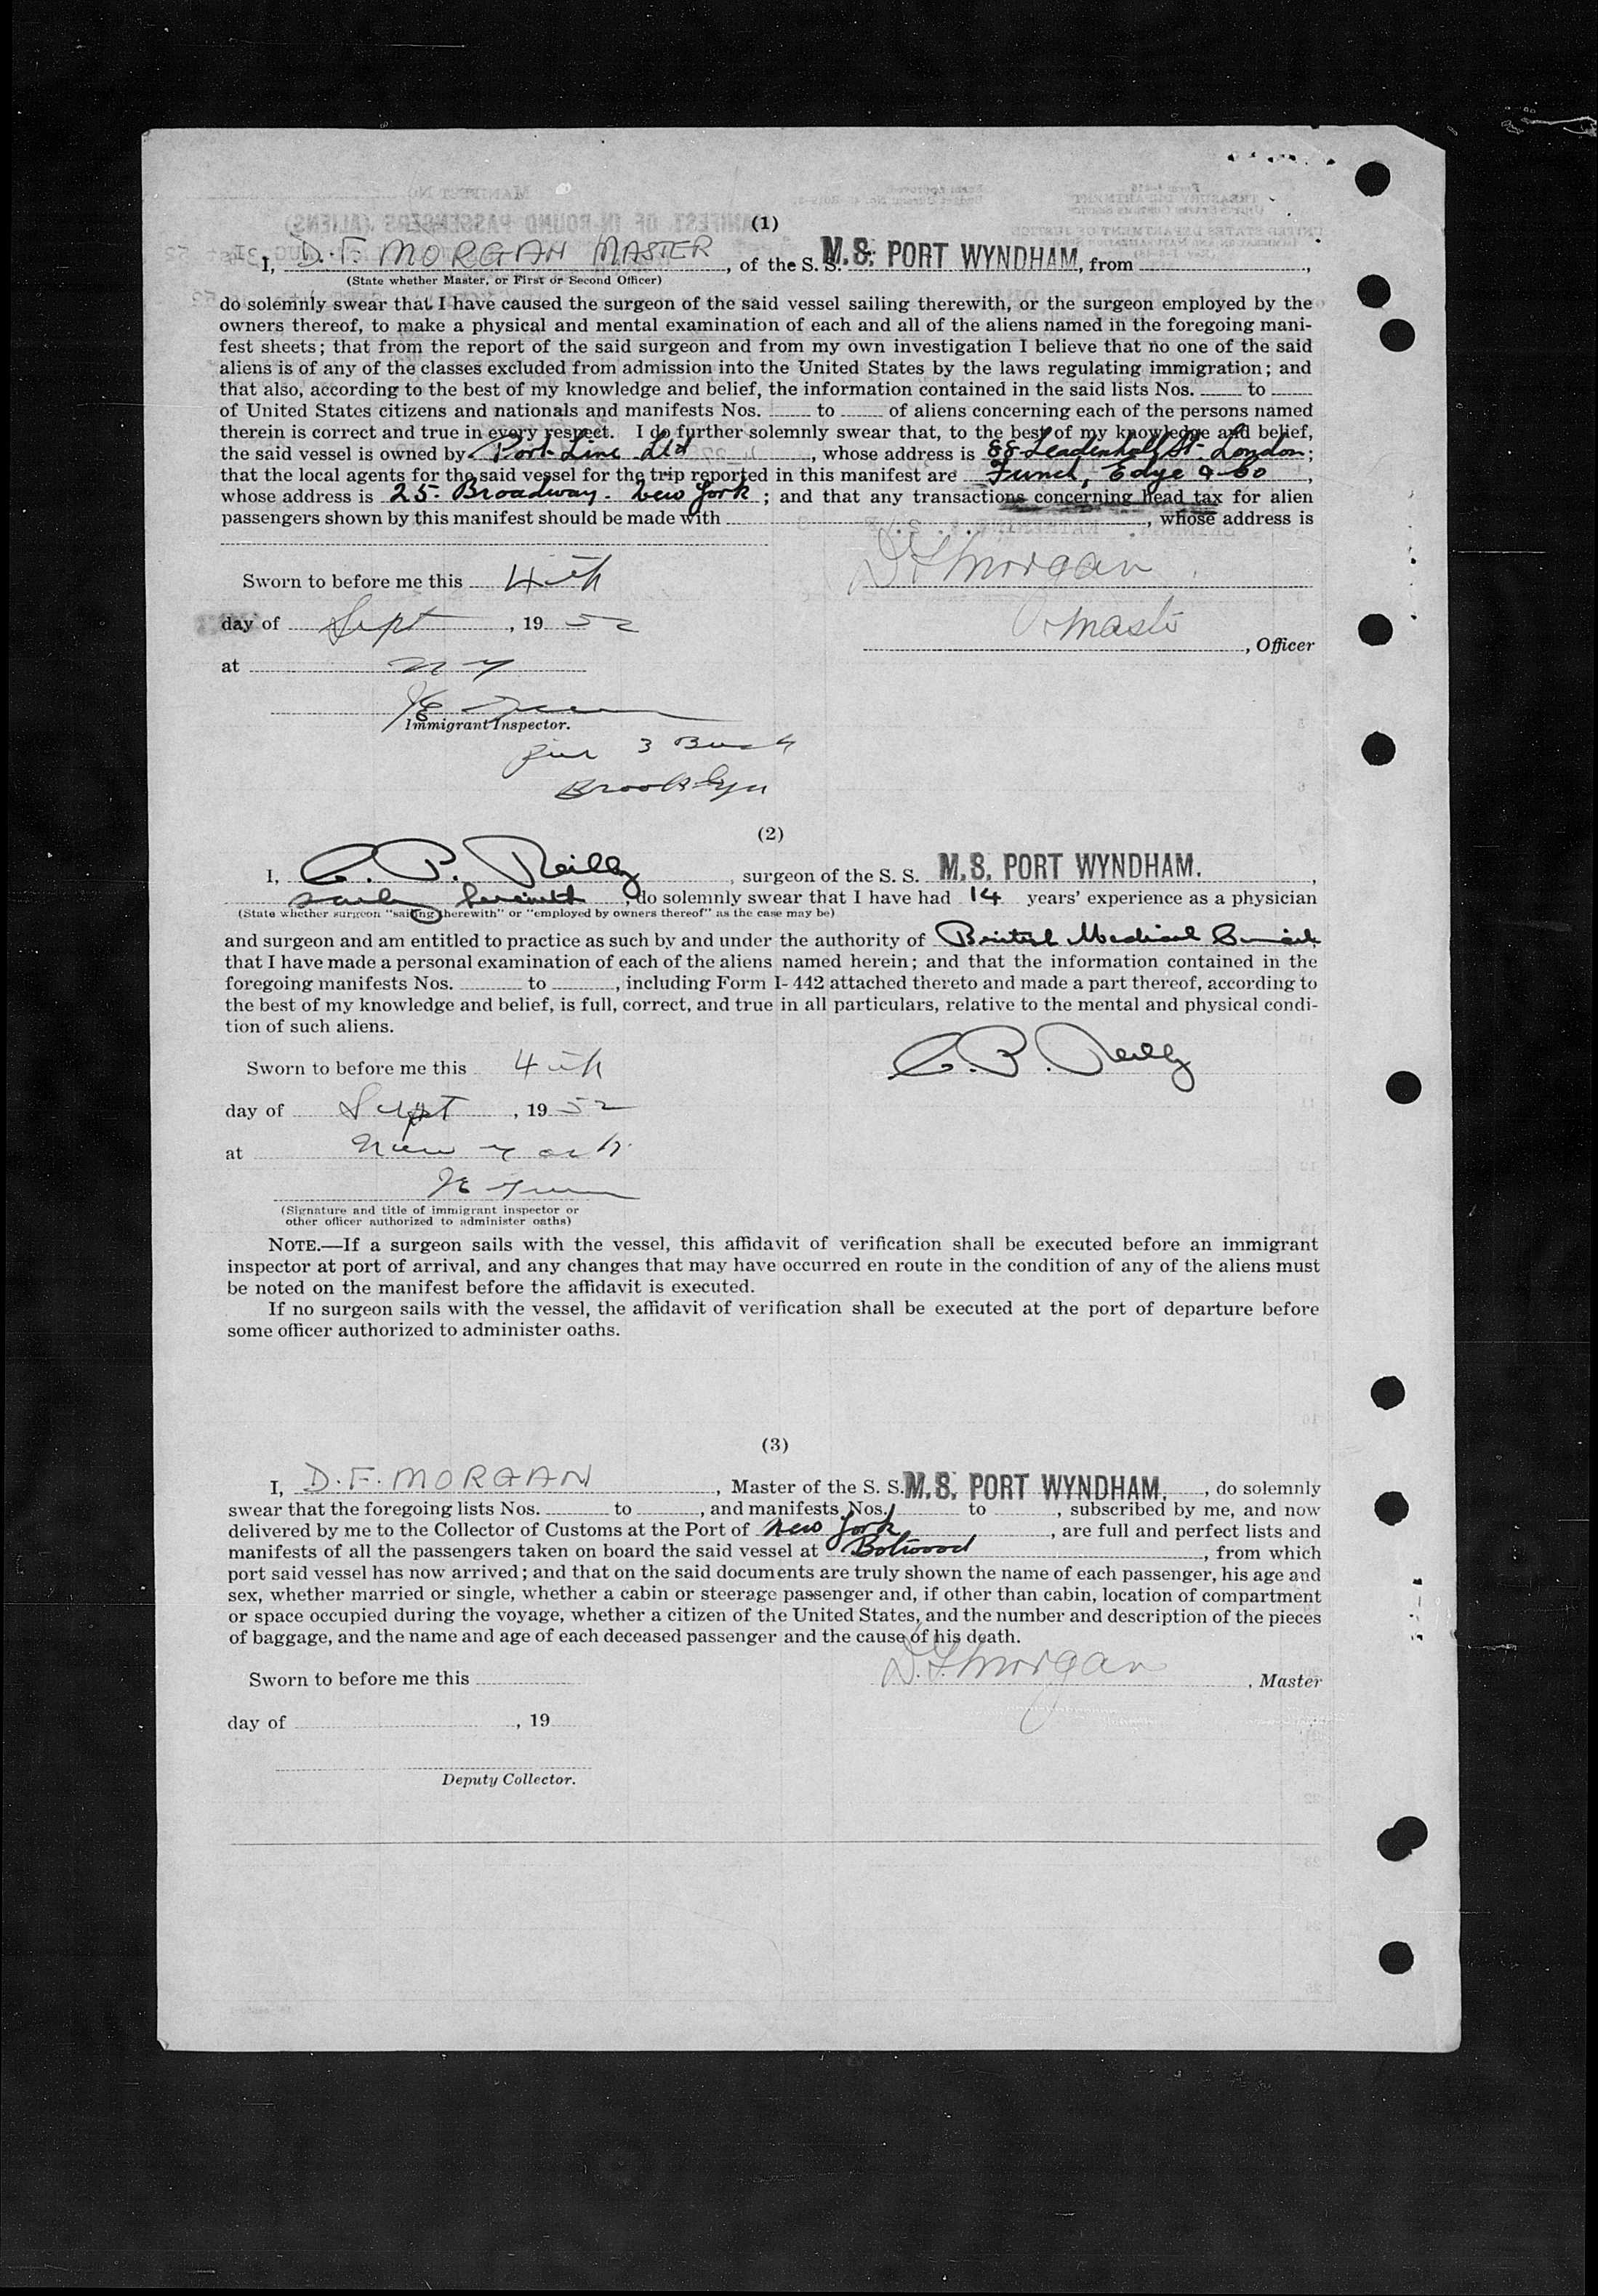 (1)
I, D. F. MORGAN MASTER, of the S. S. M.S. PORT WYNDHAM, from
(State whether Master, or First or Second Officer)
do solemnly swear that I have caused the surgeon of the said vessel sailing therewith, or the surgeon employed by the
owners thereof, to make a physical and mental examination of each and all of the aliens named in the foregoing mani-
fest sheets; that from the report of the said surgeon and from my own investigation I believe that no one of the said
aliens is of any of the classes excluded from admission into the United States by the laws regulating immigration; and
that also, according to the best of my knowledge and belief, the information contained in the said lists Nos. to
of United States citizens and nationals and manifests Nos. to of aliens concerning each of the persons named
therein is correct and true in every respect. I do further solemnly swear that, to the best of my knowledge and belief,
the said vessel is owned by Port Line Ltd, whose address is 88 Leadenhall St. London;
that the local agents for the said vessel for the trip reported in this manifest are Funch, Edye & Co,
whose address is 25 Broadway. New York; and that any transactions concerning head tax for alien
passengers shown by this manifest should be made with, whose address is
D F Morgan
Sworn to before me this 4th
day of Sept, 1952
Master, Officer
at N Y
Immigrant Inspector.
pier 3 Bush
Brooklyn
(2)
I, C. P. Reilly, surgeon of the S. S. M.S. PORT WYNDHAM.,
do solemnly swear that I have had 14 years' experience as a physician
(State whether surgeon "sailing therewith" or "employed by owners thereof" as the case may be)
and surgeon and am entitled to practice as such by and under the authority of British Medical
that I have made a personal examination of each of the aliens named herein; and that the information contained in the
foregoing manifests Nos. to, including Form I-442 attached thereto and made a part thereof, according to
the best of my knowledge and belief, is full, correct, and true in all particulars, relative to the mental and physical condi-
tion of such aliens.
C. P. Reilly
Sworn to before me this 4th
day of Sept, 1952
at New York
(Signature and title of immigrant inspector or
other officer authorized to administer oaths)
NOTE.—If a surgeon sails with the vessel, this affidavit of verification shall be executed before an immigrant
inspector at port of arrival, and any changes that may have occurred en route in the condition of any of the aliens must
be noted on the manifest before the affidavit is executed.
If no surgeon sails with the vessel, the affidavit of verification shall be executed at the port of departure before
some officer authorized to administer oaths.
(3)
I, D. F. MORGAN, Master of the S. S. M.S. PORT WYNDHAM., do solemnly
swear that the foregoing lists Nos. to, and manifests Nos. to, subscribed by me, and now
delivered by me to the Collector of Customs at the Port of New York, are full and perfect lists and
manifests of all the passengers taken on board the said vessel at Botwood, from which
port said vessel has now arrived; and that on the said documents are truly shown the name of each passenger, his age and
sex, whether married or single, whether a cabin or steerage passenger and, if other than cabin, location of compartment
or space occupied during the voyage, whether a citizen of the United States, and the number and description of the pieces
of baggage, and the name and age of each deceased passenger and the cause of his death.
D. F. Morgan, Master
Sworn to before me this
day of, 19
Deputy Collector.